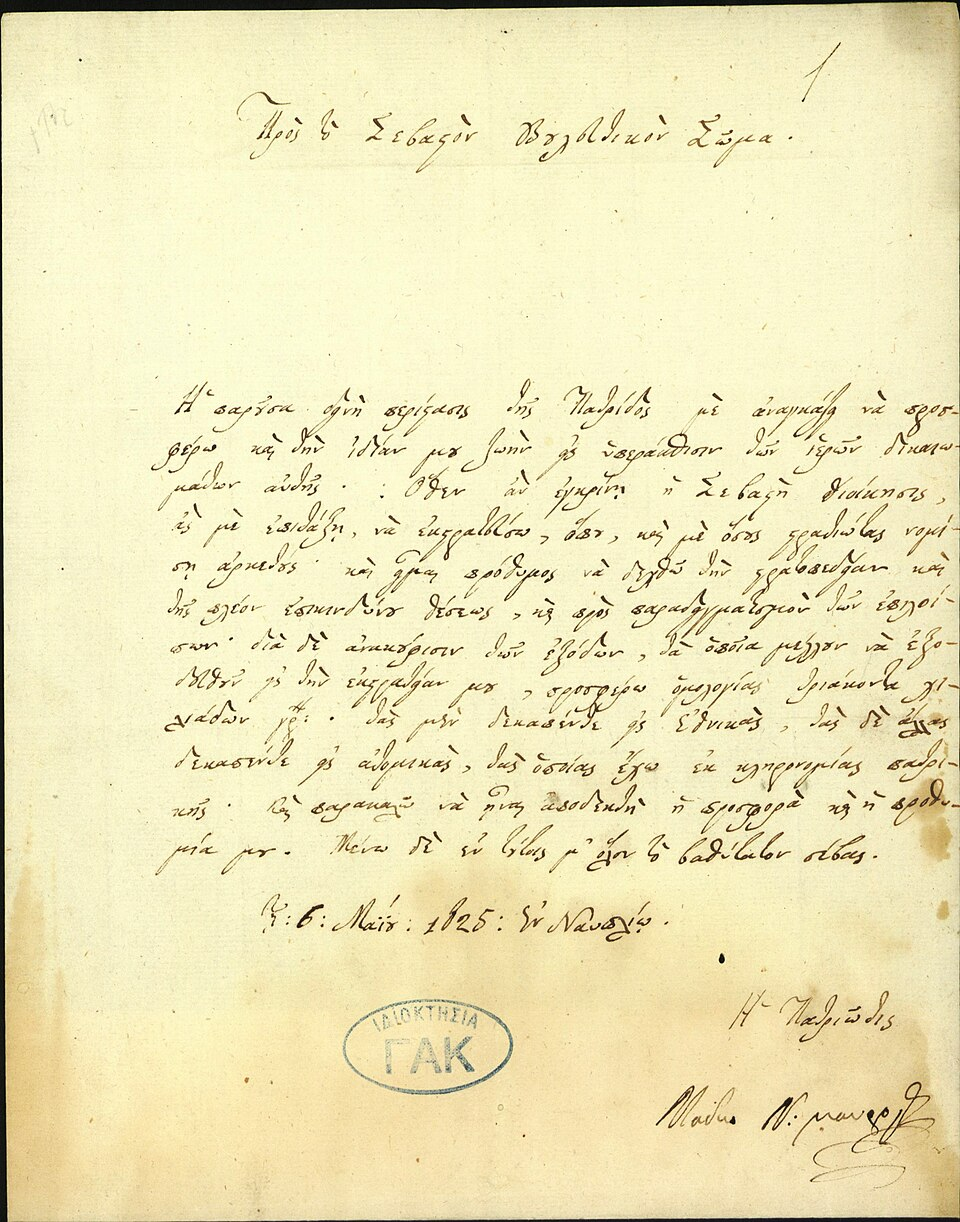 1
Πρὸς τὸ Σεβαστὸν Βουλευτικὸν Σῶμα.
Ἡ παροῦσα δεινὴ περίστασις τῆς Πατρίδος μὲ ἀναγκάζει νὰ προσ-
φέρω καὶ τὴν ἰδίαν μου ζωὴν εἰς ὑπεράσπισιν τῶν ἱερῶν δικαιω-
μάτων αὐτῆς· : Ὅθεν ἂν ἐγκρίνῃ ἡ Σεβαστὴ Διοίκησις,
ἂς μὲ ἐπιτάξῃ, νὰ ἐκστρατεύσω, ὅπου, καὶ μὲ ὅσους στρατιώτας νομί-
σῃ ἀρκετούς· καὶ εἶμαι πρόθυμος νὰ δεχθῶ τὴν στρατοπεδείαν καὶ
τῆς πλέον ἐπικινδύνου θέσεως, καὶ πρὸς παραδειγματισμὸν τῶν
διὰ δὲ τῶν ἐξόδων, τὰ ὁποῖα μέλλουν νὰ ἐξο-
δευθοῦν εἰς τὴν ἐκστρατείαν μου, προσφέρω ὁμολογίας τριάκοντα χι-
λιάδων γρ: . τὰς μὲν δεκαπέντε εἰς Ἐθνικὰς, τὰς δὲ ἄλλας
δεκαπέντε εἰς ἀτομικὰς, τὰς ὁποίας ἔχω ἐκ κληρονομίας πατρι-
κῆς· Καὶ παρακαλῶ νὰ ἦναι ἀποδεκτὴ ἡ προσφορὰ καὶ ἡ προθυ-
μία μου. Μένω δὲ ἐν τούτοις μ' ὅλον τὸ βαθύτατον σέβας.
Τῇ: 6: Μαΐου: 1825: Ἐν Ναυπλίῳ.
Ἡ Πατριῶτις
Μαδω Ν: μαυρογ
ΙΔΙΟΚΤΗΣΙΑ
ΓΑΚ